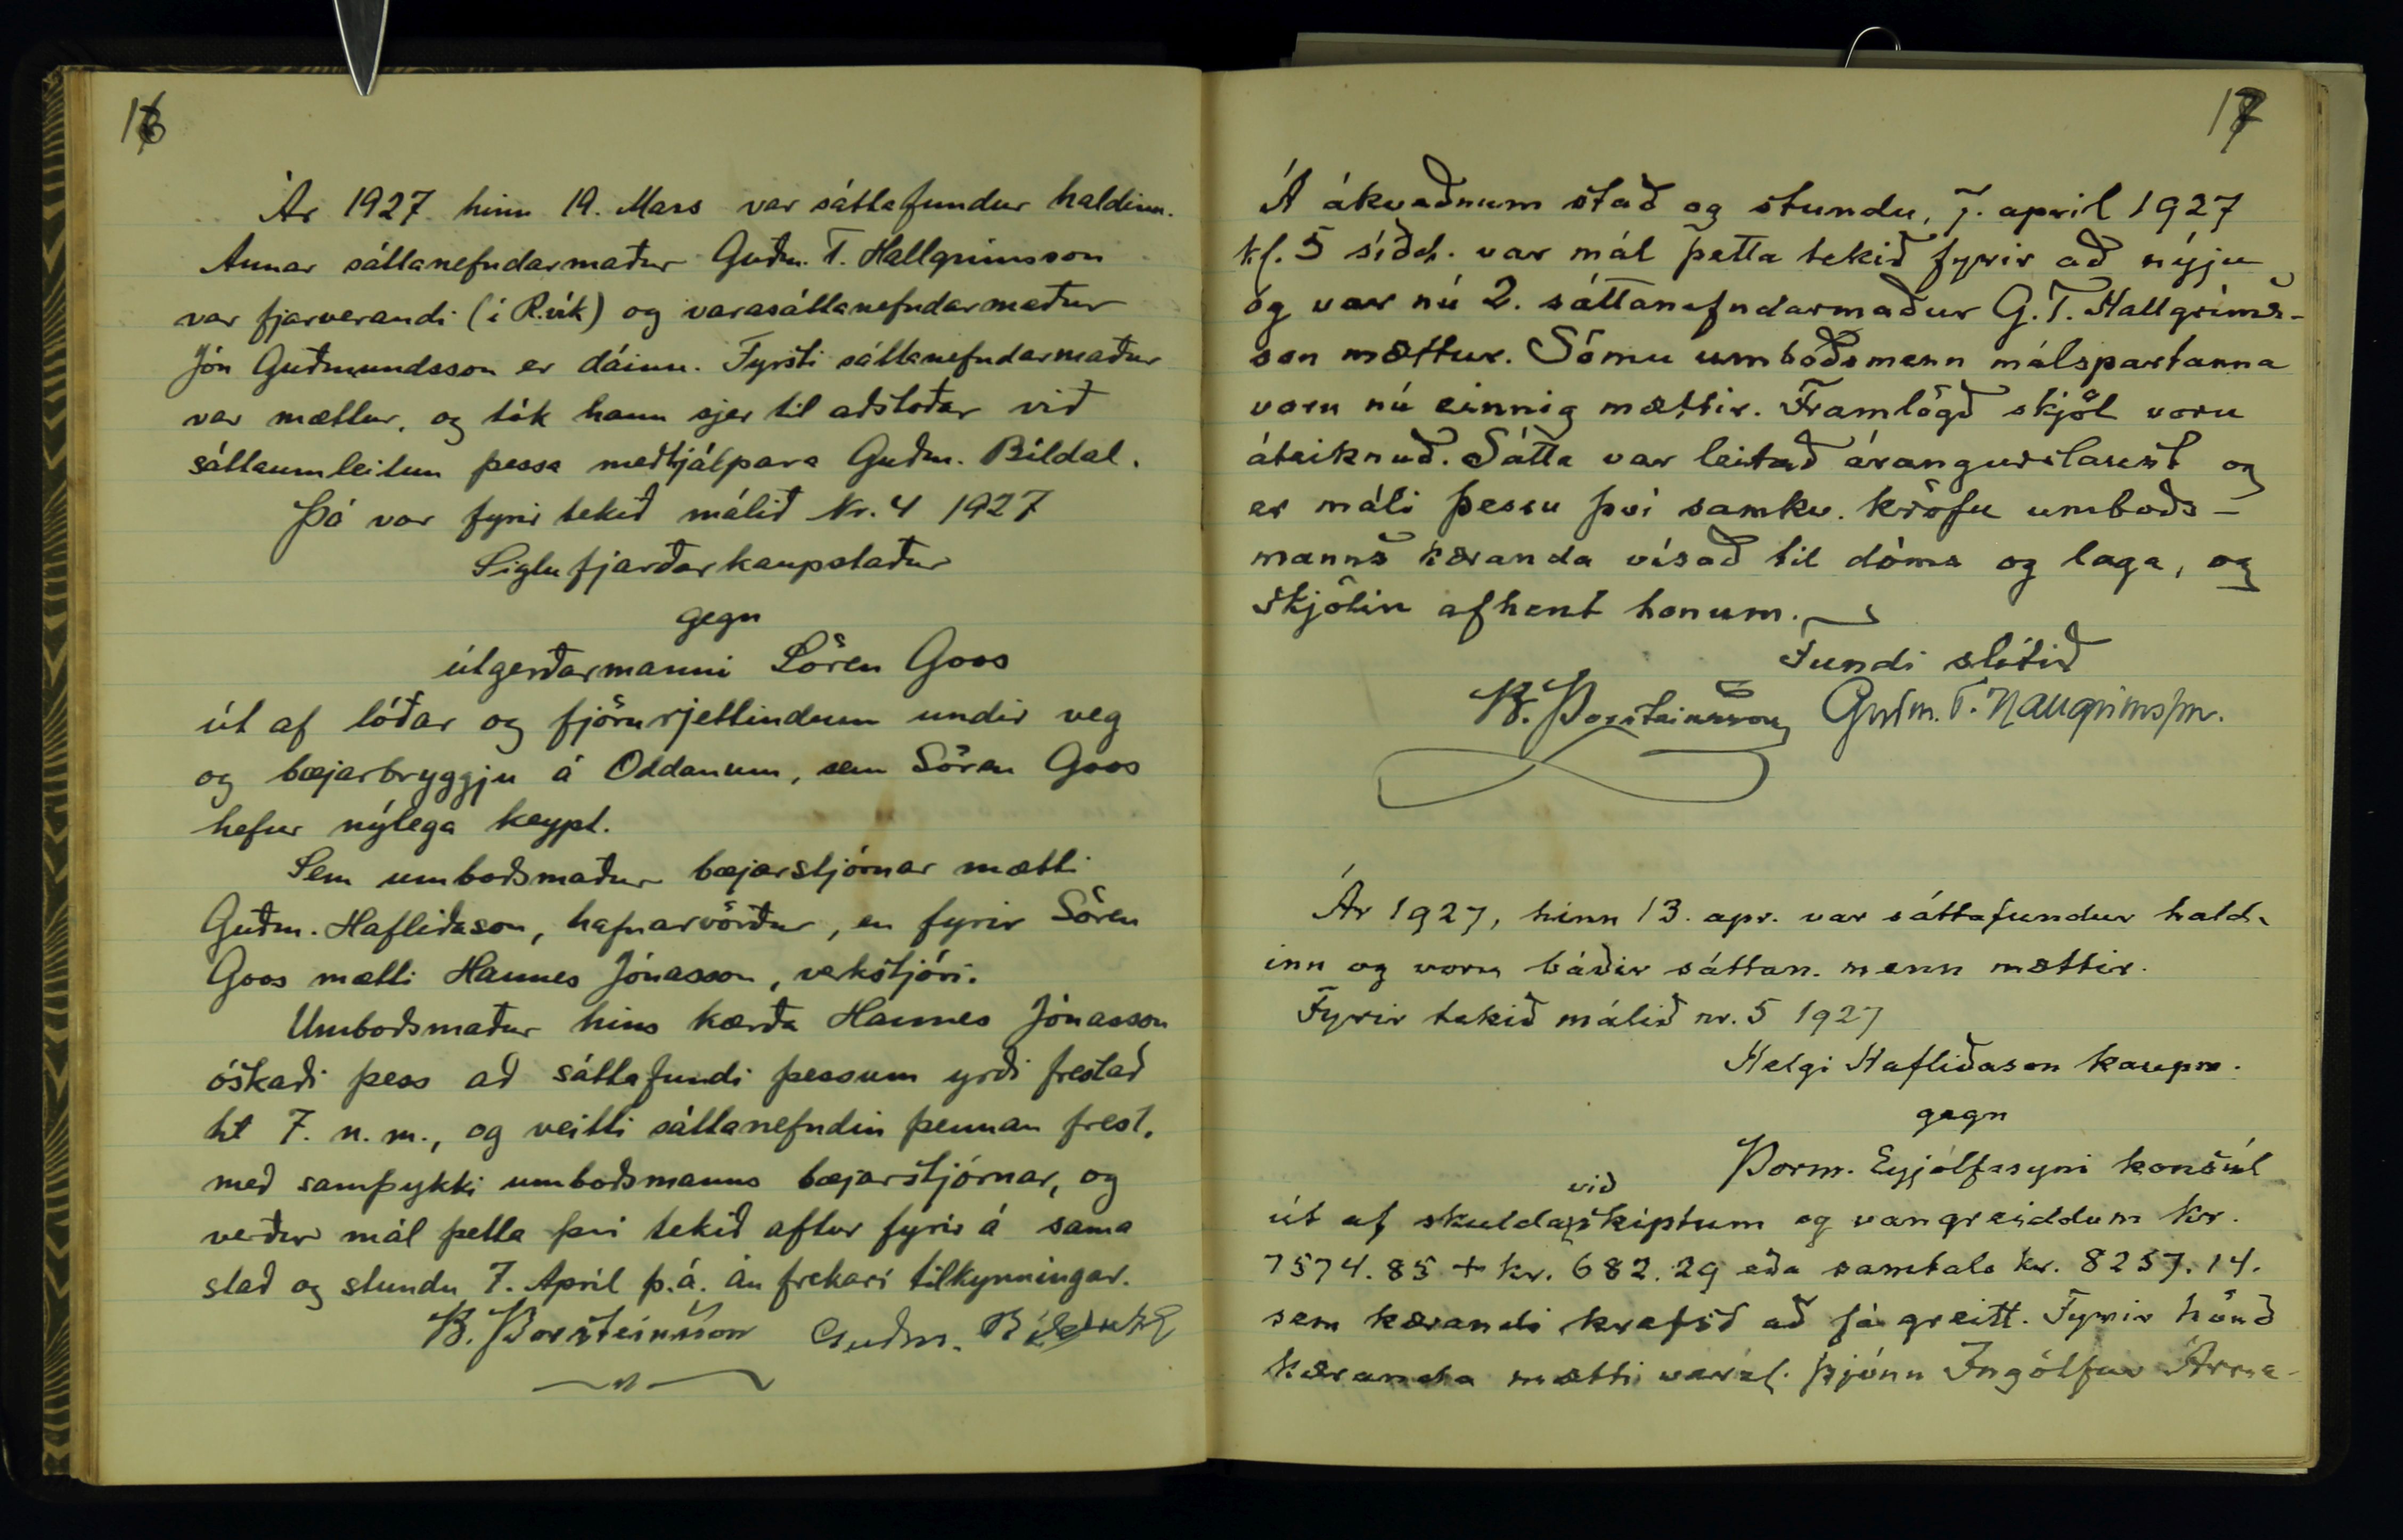 16
Ár 1927 hinn 19. Mars var sáttafundur haldinn.
Annar sáttanefndarmaður Guðm. T. Hallgrímsson
var fjarverandi (í R.vík) og varasáttanefndarmaður
Jón Guðmundsson er dáinn. Fyrsti sáttanefndarmaður
var mættur, og tók hann sjer til aðstoðar við
sáttaumleitun þessa meðhjálpara Guðm. Bíldal.
Þá var fyrir tekið málið Nr. 4 1927
Siglufjarðarkaupstaður
gegn
útgerðarmanni Sören Goos
út af lóðar og fjörurjettindum undir veg
og bæjarbryggju á Oddanum, sem Sören Goos
hefur nýlega keypt.
Sem umboðsmaður bæjarstjórnar mætti
Guðm. Hafliðason, hafnarvörður, en fyrir Sören
Goos mætti Hannes Jónasson, verkstjóri.
Umboðsmaður hins kærða Hannes Jónasson
óskaði þess að sáttafundi þessum yrði frestað
til 7. n. m., og veitti sáttanefndin þennan frest,
með samþykki umboðsmanns bæjarstjórnar, og
verður mál þetta því tekið aftur fyrir á sama
stað og stundu 7. Apríl þ.á. án frekari tilkynningar.
B. Þorsteinsson Guðm. Bíldahl
17
Á ákveðnum stað og stundu, 7. april 1927
kl. 5 síðd. var mál þetta tekið fyrir að nýju
og var nú 2. sáttanefndarmaður G. T. Hallgríms-
son mættur. Sömu umboðsmenn málspartanna
voru nú einnig mættir. Framlögð skjöl voru
áteiknuð. Sátta var leitað árangurslaust og
er máli þessu því samkv. kröfu umboðs-
manns kæranda vísað til dóms og laga, og
skjölin afhent honum.
Fundi slitið
B. Þorsteinsson Guðm. T. Hallgrímsson.
Ár 1927, hinn 13. apr. var sáttafundur hald-
inn og voru báðir sáttan. menn mættir.
Fyrir tekið málið nr. 5 1927
Helgi Hafliðason kaupm.
gegn
Þorm. Eyjólfssyni konsúl
út af skuldaviðskiptum og vangreiddum kr.
7574.85 + kr. 682.29 eða samtals kr. 8257.14.
sem kærandi krefst að fá greitt. Fyrir hönd
kæranda mætti verzl. þjónn Ingólfur Árna-